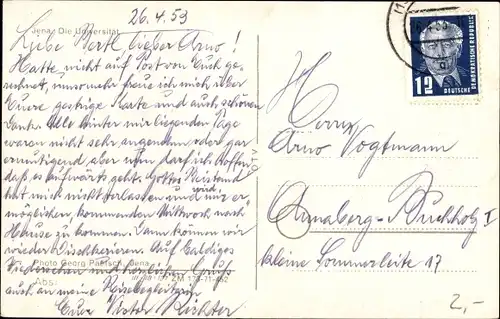 26.4.53
Jena, Die Universität
Liebe Hertl, lieber Arno!
Hatte nicht auf Post von Euch ge-
rechnet, umso mehr freue ich mich über
Eure gestrige Karte und auch schönen
Dank. Alle hinter mir liegenden Tage
waren nicht sehr angenehm oder gar
ermutigend aber nun darf ich hoffen,
daß es aufwärts geht. Gottes Beistand
hat mich nicht verlassen und wird mir er
möglichen, kommenden Mittwoch nach
Hause zu kommen. Dann können wir
wieder Auf baldiges
Wiedersehen mit herzlichem Gruß
auch an meine
Euer Victor Richter
Photo Georg Jena
Abs.:
12
DEUTSCHE
DEMOKRATISCHE REPUBLIK
Herrn
Arno Vogtmann
Annaberg-Buchholz I
kleine Sommerleite 17
2,-